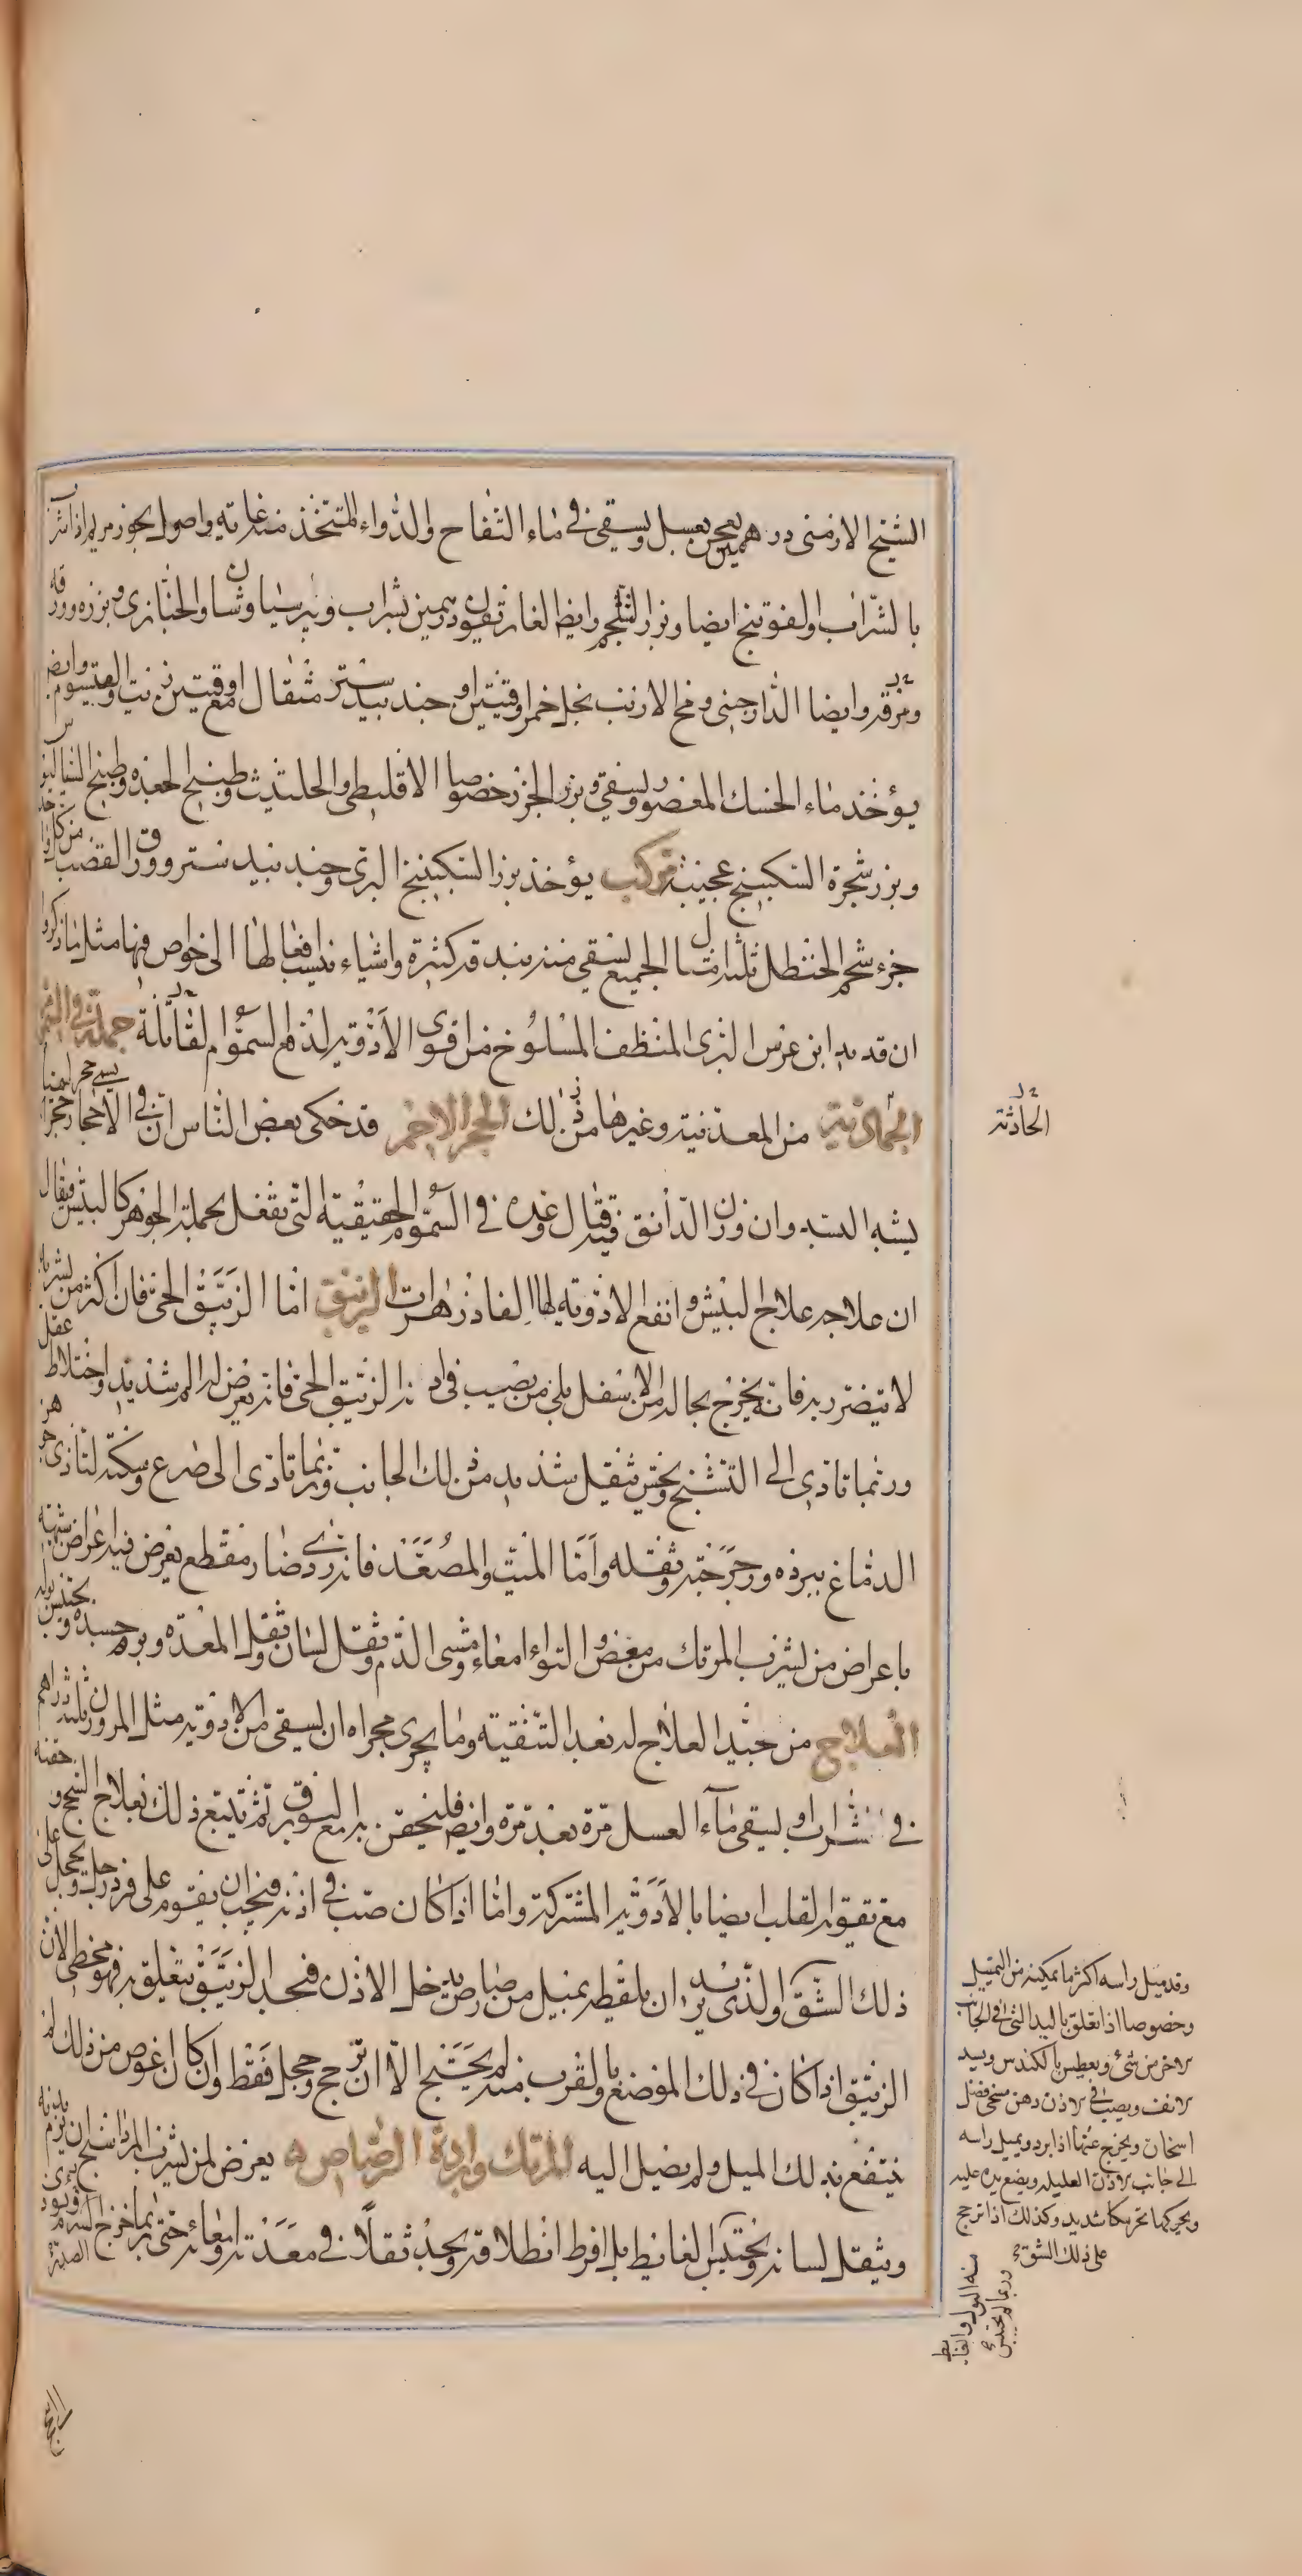 الشيح الارمنى درهمين يعجن بعسل ويسقى فى ماء التفاح والدواء المتخذ منه واصول بخور مريم اذا شرب
بالشراب او الفوتنج ايضا وبزر الشلجم وايضا الغاريقون درهمين بشراب وبرسياوشان والخبازى وبزره وورقه
ومرقه وايضا الدارصينى ومخ الارنب بخل خمر اوقيتين او جندبيدستر مثقال مع اوقيتين زيت والقيسوم وايضا
يؤخذ ماء الحسك المعصور ويسقى وبزر الجزر خصوصا الاقليطى والحلتيث وطبيخ الجعده وطبيخ
وبزر شجرة السكبينج عجيبة مركب يؤخذ بزر السكبينج البرى وجندبيدستر وورق القصب من كل واحد
جزء شحم الحنظل ثلثا مثقال الجميع يسقى منه بنبيذ قد كثيرة واشياء ينسب افعالها الى خواص فيها مثل ما ذكروا
ان قديد ابن عرس البرى المنظف المسلوخ من اقوى الادوية لهذه السموم القاتلة جملة فى السموم
الجمادية من المعدنية وغيرها من ذلك الحجر الاحمر قد حكى بعض الناس ان فى الاحجار حجرا
يشبه البسد وان وزن الدانق فيه قتال وعده فى السموم الحقيقية التى تفعل بجملة الجوهر كالبيش فيقال
ان علاجه علاج البيش وانفع الادوية لها الفادزهرات الزيبق اما الزيبق الحى فان اكثر من يشربه
لا يتضرر به فانه يخرج بحاله من الاسفل بلى من يصيب فى اذنه الزيبق الحى فانه يعرض له الم شديد واختلاط عقل
وربما تادى الى التشنج ويحس بثقل شديد من ذلك الجانب وربما تادى الى صرع وسكتة لتاذى جوهر
الدماغ ببرده ورجرجته وثقله واما الميت والمصعد فانه ردى ضار مقطع يعرض فيه اعراض شبيهة
باعراض من يشرب المرتك من مغص والتواء امعاء ومشى الدم وثقل لسان وثقل المعده وورم جسده ويحتبس بوله
العلاج من جيد العلاج له بعد التنقية وما يجرى مجراه ان يسقى من الادوية مثل المر وزن ثلثة دراهم
فى شراب او يسقى ماء العسل مرة بعد مرة وايضا فليحقن به مع البورق ثم يتبع ذلك بعلاج السحج وحقنه
مع تقوية القلب ايضا بالادوية المشتركة واما اذا كان صب فى اذنه فيجب ان يقوم على فرد رجل ويحجل على
ذلك الشق والذى يريد ان يلقطه بميل من رصاص يدخل الاذن فيجد الزيبق يتعلق به فهو مخطى لان
الزيبق اذا كان فى ذلك الموضع او بالقرب منه لم يحتج الا ان ترجح وحجل فقط وان كان اغوص من ذلك لم
ينتفع بذلك الميل ولم يصل اليه المرتك وبرادة الرصاص يعرض لمن يشرب المرداسنج ان يرم بدنه
ويثقل لسانه ويحتبس الغايط بل افرط انطلاقه ويجد ثقلا فى معدته وامعائه حتى ربما اخرج السرم
الحادثة
وقد ميل راسه اكثر ما يمكنه من التمييل
وخصوصا اذا تعلق باليد التى فى الجانب
الاخر من شىء ويعطس بالكندس ويسد
الانف ويصب فى الاذن دهن مسخن فضل
اسخان ويخرج عنها اذا برد ويميل راسه
الى جانب الاذن العليله ويضع يده عليه
ويحركها تحريكا شديدا وكذلك اذا ترجح
على ذلك الشق
منه البول والغايط
وربما لم يحتبس